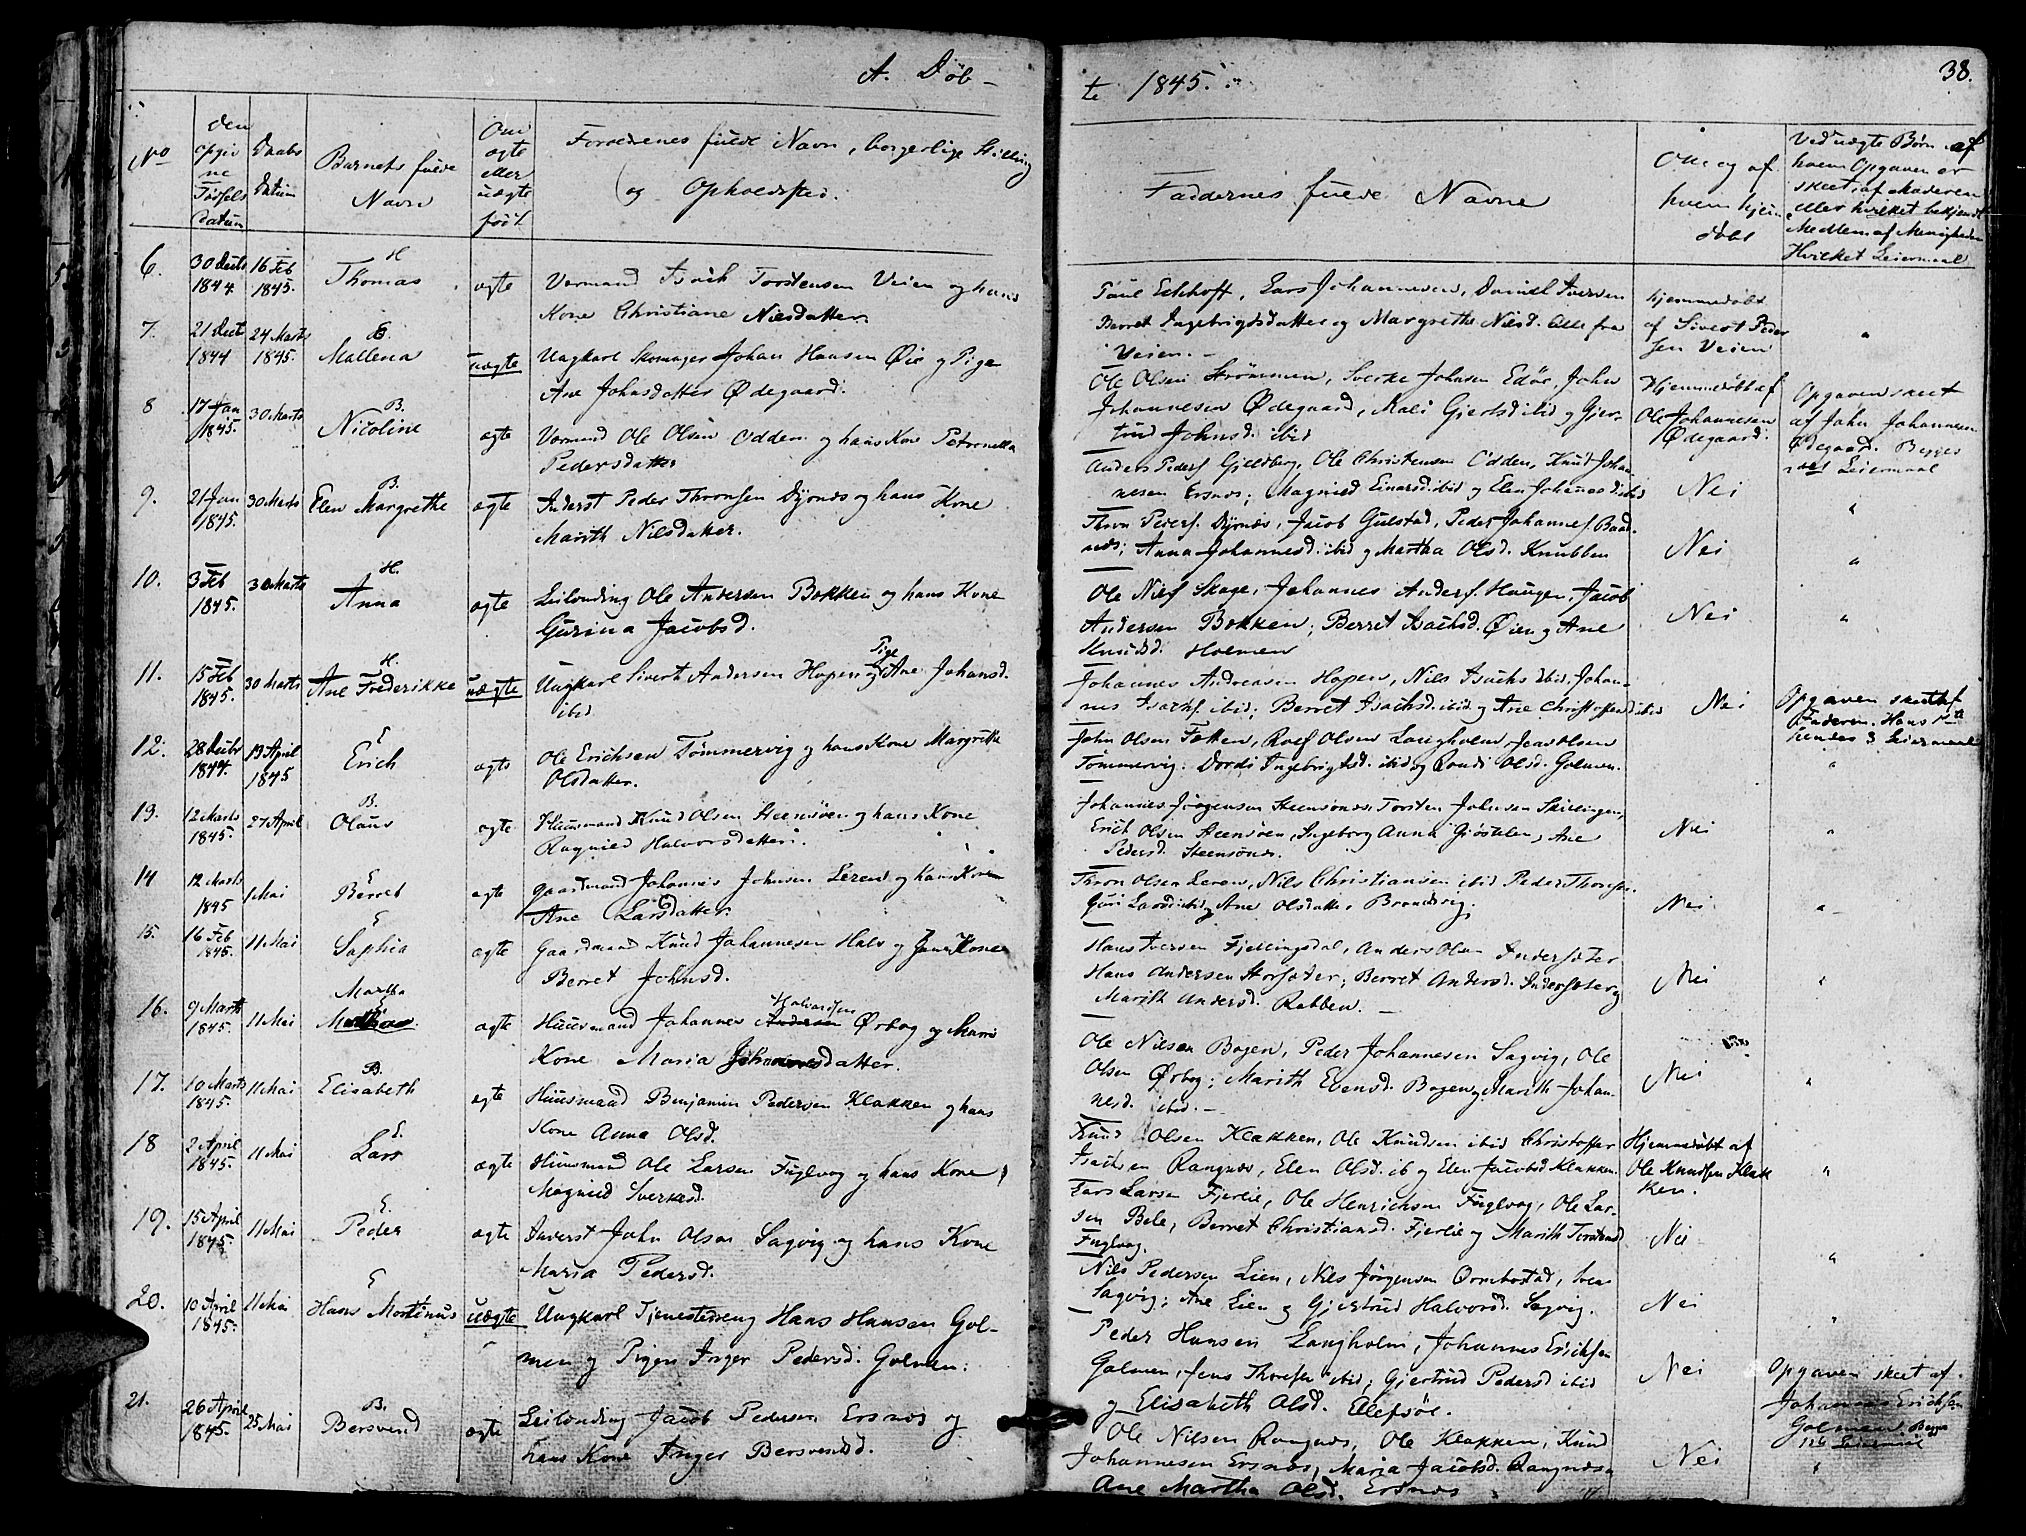 A. Døb-
te 1845.
38.
No
den opgivne Fødsels Datum
Daabs Datum
Barnets fulde Navn
Om ægte eller uægte født
Forældrenes fulde Navn, borgerlige Stilling og Opholdsted.
Faddernes fulde Navne
Om og af hvem hjemdøbt
Ved uægte Børn af hvem Opgaven er skeet, af Moderen eller hvilket bekjendt Medlem af Menigheden Hvilket Leiermaal
6. 30 Decbr 1844. 16 Feb 1845. H Thomas ægte
Isach Torstensen Veien og hans
Kone Christiane Nilsdatter.
Lars Johannesen, Daniel Iversen
Berret Ingebrigtsdatter og Margrethe Nilsd. alle fra
Veien.
hjemmedøbt
af Sivert Peder
sen Veien
7. 21 Decbr 1844 24 Marts 1845. Mallena uægte
Ungkarl Skomager Johan Hansen Øie og Pige
Ane Johnsdatter Ødegaard.
Ole Olsen Strømmen, Sverke Johnsen Edöe, John
Johannesen Ødegaard, Mali Gjertsd ibid og Gjer-
trud Johnsd. ibid
Hjemmedøbt af
Ole Johannesen
Ødegaard.
Opgaven skeet
af John Johannesen
Ødegaard. Begges
Leiermaal
8 17 Jan 1845. 30 Marts B. Nicoline ægte
Ole Olsen Odden og hans Kone Petronella
Pedersdatter
Anders Peders. Gjeldberg, Ole Christensen Odden, Knud Johan
nesen Ersnes; Magnild Einarsd ibid og Elen Johannesd ibid
Nei
9. 21 Jan 1845. 30 Marts B. Elen Margrethe ægte
Inderst Peder Thronsen Dyrnes og hans Kone
Marith Nilsdatter.
Thron Peders. Dyrnæs, Jacob Gulstad, Peder Johannes. Baad
næs; Anna Johannesd. ibid og Martha Olsd. Knubben
Nei
10. 3 Feb 1845. 30 Marts H. Anna ægte
Leilending Ole Andersen Bakken og hans Kone
Gurina Jacobsd.
Ole Niels. Skage, Johannes Anders. Haugen, Jacob
Andersen Bakken; Berret Isachsd. Øien og Ane
Knudsd. Holmen
Nei
11. 15 Feb 1845. 30 Marts H. Ane Frederikke uægte
Ungkarl Sivert Andersen Hopen og Pige Ane Johansd.
ibid
Johannes Andreasen Hopen, Nils Isachs ibid, Johan-
nes Isachs. ibid; Berret Isachsd. ibid og Ane Christoffersd ibid
Nei
Opgaven skeet af
Faderen. Hans
hendes 3 Leiermaal
12. 28 Decbr 1844. 13 April 1845 E Erich ægte
Ole Erichsen Tømmervig og hans Kone Margrethe
Olsdatter.
John Olsen Fætten, Roel Olsen Langholm, Jens Olsen
Tømmervig. Dordi Ingebrigtsd. ibid og Randi Olsd. Golmen.
13. 12 Marts 1845. 27 April B. Olaus ægte
Huusmand Knud Olsen Steensøen og hans Kone
Ragnild Halvorsdatter.
Johannes Jörgensen Steensønes, Torsten Johnsen Skillingen,
Erich Olsen Steensøen, Ingeborg Anna Gjøstelen, Ane
Pedersd. Steensönes.
Nei
14 12 Marts 1845 1 Mai E Berret ægte
Gaardmand Johannes Johnsen Leren og hans Kone
Ane Larsdatter.
Thron Olsen Leren, Nils Christiansen ibid Peder Thronsen
Guri Larsd ibid og Ane Olsdatter Brandsvig.
Nei
15. 16 Feb 1845. 11 Mai E Sophia ægte
Gaardmand Knud Johannesen Hals og hans Kone
Berret Johnsd.
Hans Iversen Fjellingsdal, Anders Olsen Indersæter
Hans Andersen Storsæter; Berret Andersd. Indersæter og
Marith Andersd. Rabben.
Nei
16. 9 Marts 1845. 11 Mai E Martha ægte
Huusmand Johannes Andersen Halvorsen Ørbog og hans
Kone Maria Johannesdatter.
Ole Nilsen Bogen, Peder Johannesen Sagvig, Ole
Olsen Ørbog; Marith Evensd. Bogen og Marith Johan
nesd. ibid.
Nei
17. 10 Marts 1845. 11 Mai B. Elisabeth ægte
Huusmand Benjamin Pedersen Klakken og hans
Kone Anna Olsd.
Knud Olsen Klakken, Ole Knudsen ibid Christoffer
Isachsen Rangnes, Elen Olsd. ib og Elen Jacobsd Klakken.
Hjemmedøbt af
Ole Knudsen Klak
ken.
18 2 April 1845. 11 Mai E. Lars ægte
Huusmand Ole Larsen Fuglvog og hans Kone
Magnild Sverkesd.
Lars Larsen Fjerlie, Ole Henrichsen Fuglvog, Ole Lar-
sen Bele, Berret Christiansd. Fjerlie og Marith Torstensd
Fuglvog.
Nei
19. 15 April 1845 11 Mai E. Peder ægte
Inderst John Olsen Sagvig og hans Kone
Maria Pedersd.
Nils Pedersen Lien, Nils Jörgensen Ormbostad, Iver
Sagvig; Ane Lien og Gjertrud Halvorsd. Sagvig.
Nei
20. 10 April 1845. 11 Mai E Hans Martinus uægte
Ungkarl Tjenestedreng Hans Hansen Gol-
men og Pigen Inger Pedersd. Golmen.
Peder Hansen Langholm, Johannes Erichsen
Golmen, Jens Thoresen ibid; Gjertrud Pedersd ibid
og Elisabeth Olsd. Ellefsöe.
Nei
Opgaven skeet af
Johannes Erichsen
Golmen. Begges
1ste Leiermaal
21. 26 April 1845. 25 Mai B. Bersvend ægte
Leilending Jacob Pedersen Ersnes og
hans Kone Inger Bersvendsd.
Ole Nilsen Rangnes, Ole Klakken, Knud
Johannesen Ersnæs, Maria Jacobsd. Rangnes og
Ane Martha Olsd. Ersnæs
Nei